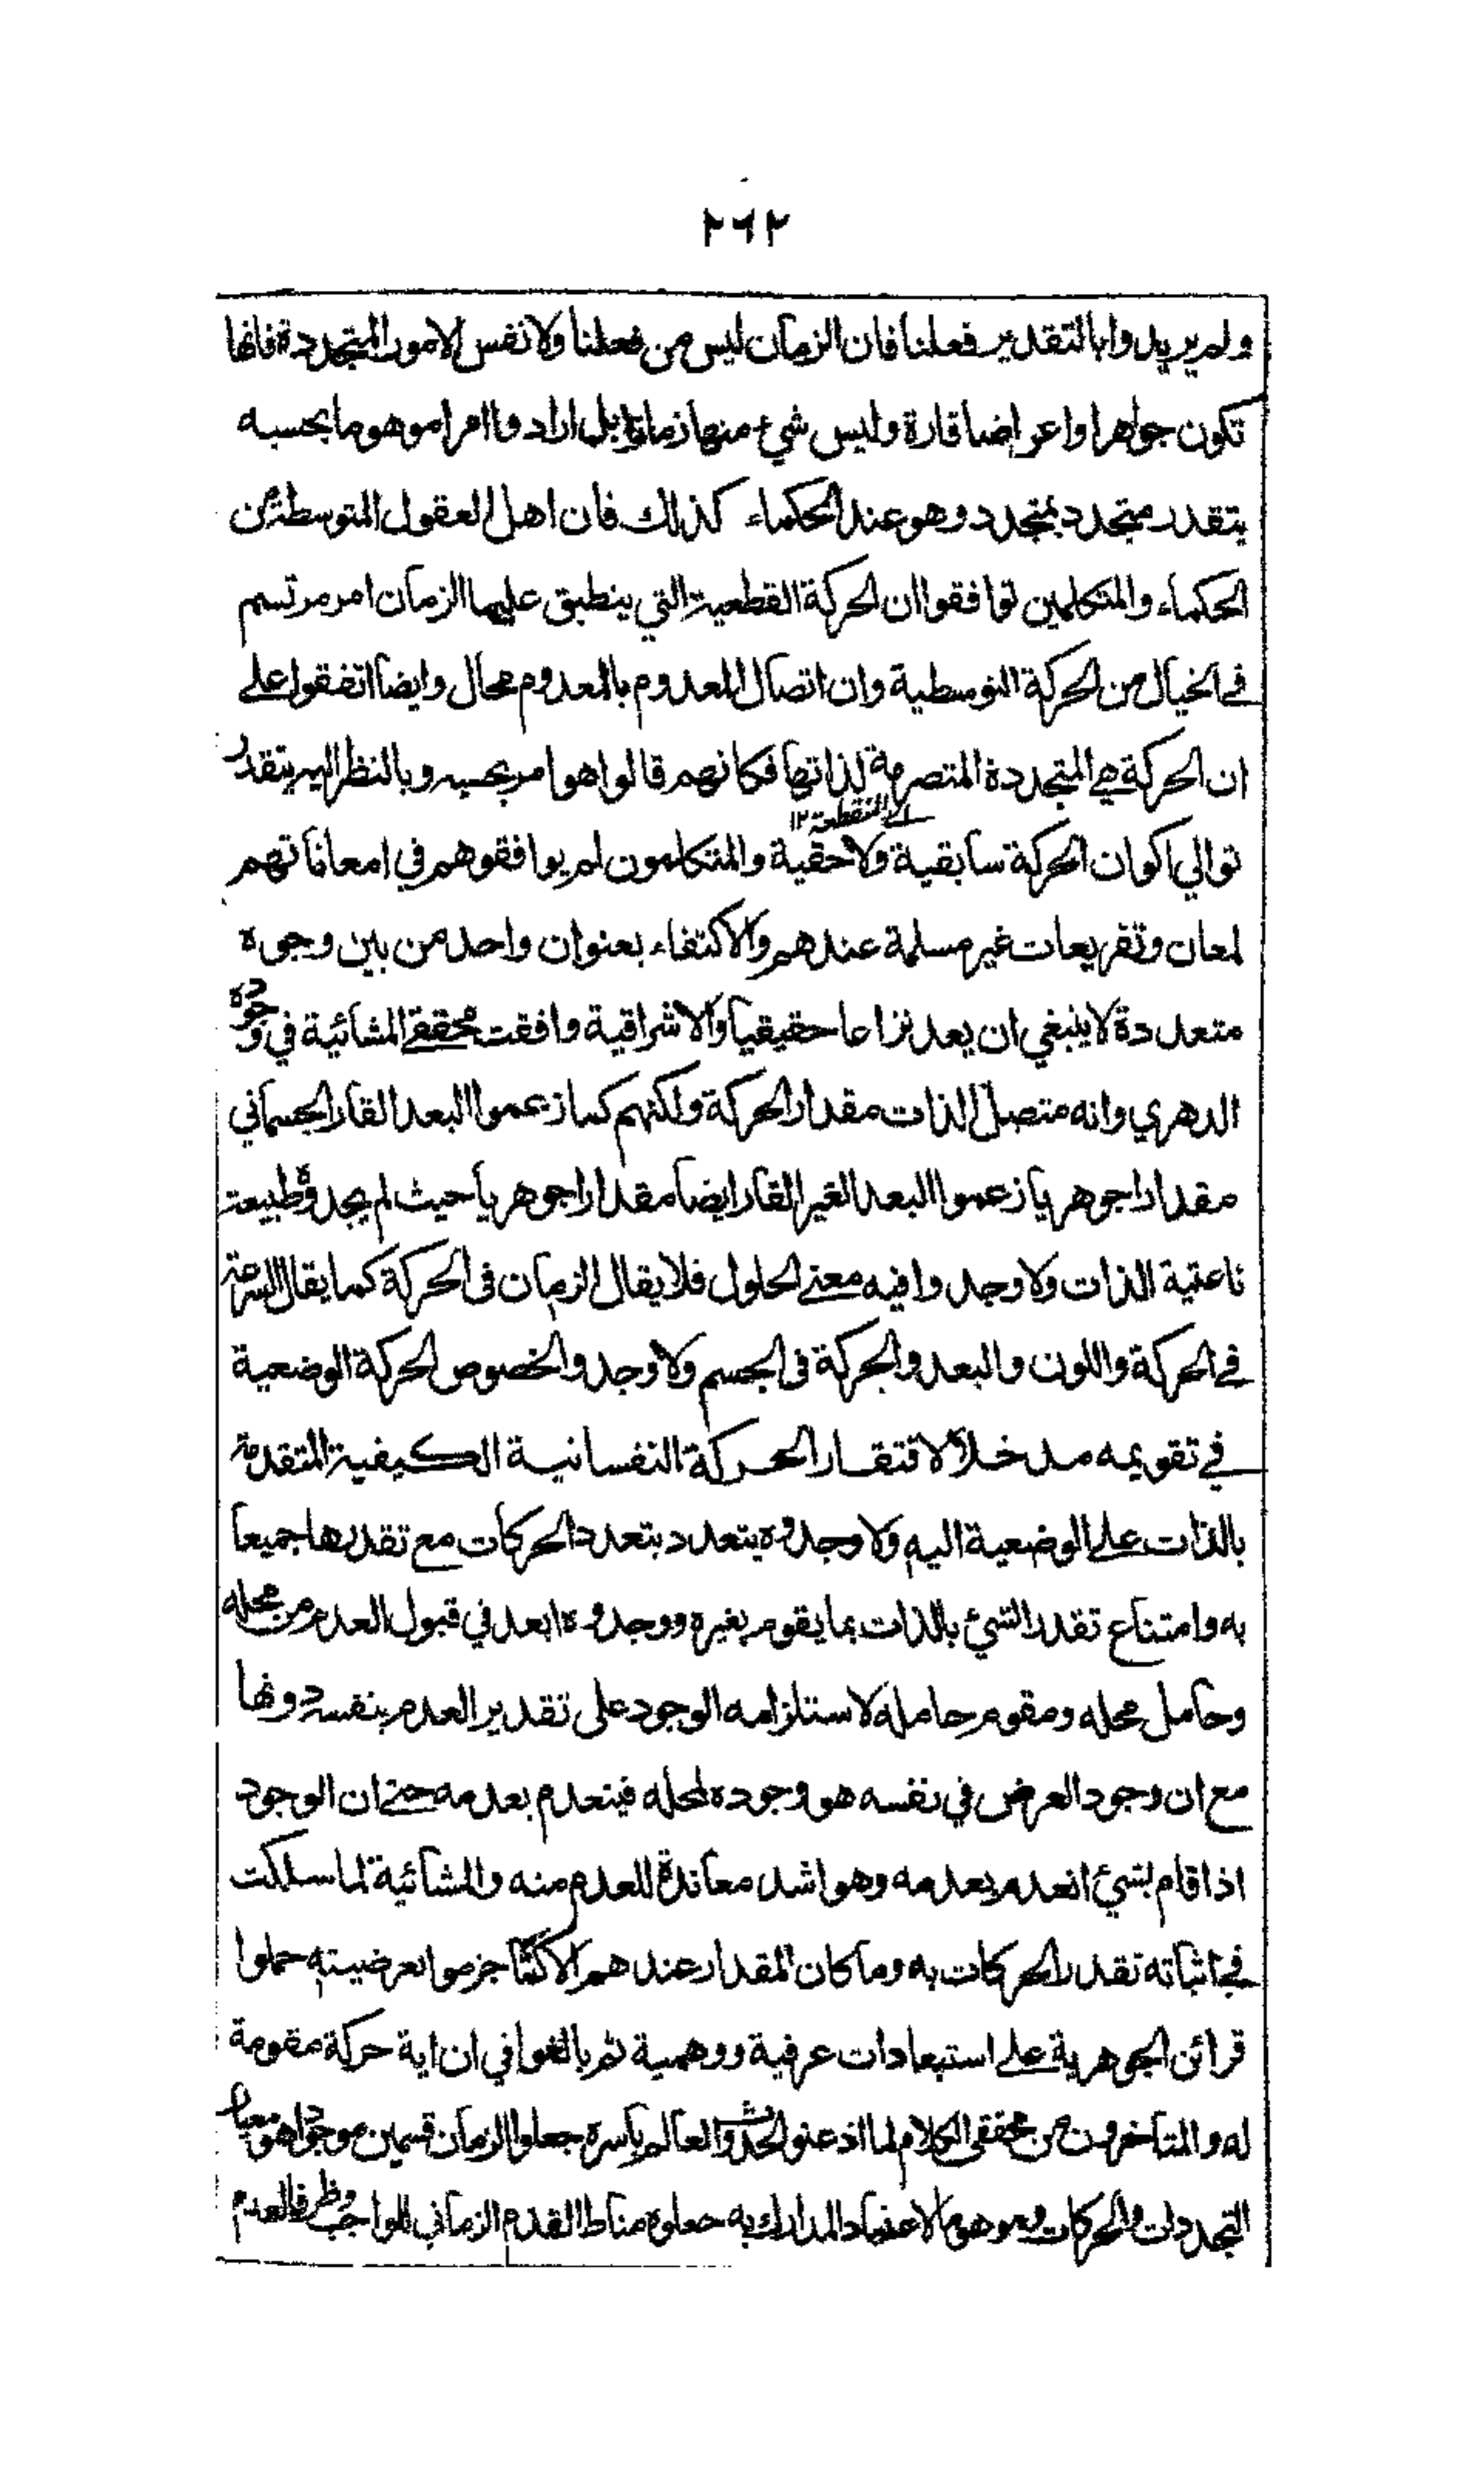 ٢٦٢
ولم يريدوا بالتقدير فعلنا فان الزمان ليس من فعلنا ولا نفس الامور المتجددة فانها
تكون جواهر او اعراضا قارة وليس شيء منها زمانا بل ارادوا امرا موهوما بحسبه
يتقدر متجدد بمتجدد وهو عند الحكماء كذلك فان اهل العقول المتوسطة من
الحكماء والمتكلمين توافقوا ان الحركة القطعية التي ينطبق عليها الزمان امر مرتسم
في الخيال من الحركة التوسطية وان اتصال المعدوم بالمعدوم محال وايضا اتفقوا على
ان الحركة هي المتجددة المتصرمة لذاتها فكانهم قالوا هو امر بحسبه وبالنظر اليه يتقدر
اے المنقطعة ١٢
توالي اكوان الحركة سابقية ولاحقية والمتكلمون لم يوافقوهم في امعاناتهم
لمعان وتفريعات غير مسلمة عندهم والاكتفاء بعنوان واحد من بين وجوه
متعددة لا ينبغي ان يعد نزاعا حقيقيا والاشراقية وافقت محققي المشائية في وجوده
الدهري وانه متصل الذات مقدار الحركة ولكنهم كما زعموا البعد القار الجسماني
مقدارا جوهريا زعموا البعد الغير القار ايضا مقدارا جوهريا حيث لم يجدوه طبيعة
ناعتية الذات ولا وجدوا فيه معنى الحلول فلا يقال الزمان فى الحركة كما يقال السرعة
في الحركة واللون والبعد والحركة فى الجسم ولا وجدوا لخصوص الحركة الوضعية
في تقويمه مدخلا لافتقار الحركة النفسانية الكيفية المتقدمة
بالذات على الوضعية اليه ولا وجدوه يتعدد بتعدد الحركات مع تقدرها جميعا
به وامتناع تقدر الشيئ بالذات بما يقوم بغيره ووجدوه ابعد في قبول العدم من محله
وحامل محله ومقوم حامله لاستلزامه الوجود على تقدير العدم بنفسه دونها
مع ان وجود العرض في نفسه هو وجوده لمحله فينعدم بعدمه حتى ان الوجود
اذا قام بشيئ انعدم بعدمه وهو اشد معاندة للعدم منه والمشائية لما سلكت
في اثباته تقدر الحركات به وما كان المقدار عندهم الا كما جزموا بعرضيته حملوا
قرائن الجوهرية على استبعادات عرفية ووهمية ثم بالغوا في ان اية حركة مقومة
له والمتاخرون من محققي الكلام لما اذعنوا لحدوث العالم باسره جعلوا الزمان قسمين موجودا هو معيار
التجددات والحركات وموهوم الاعتماد المدارك به جعلوه مناط القدم الزماني للواجب وظرفا لعدم